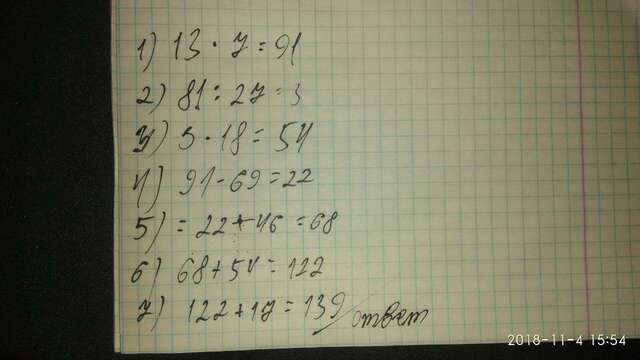 1) 13 · 7 = 91
2) 81 : 27 = 3
3) 3 · 18 = 54
4) 91 - 69 = 22
5) = 22 + 46 = 68
6) 68 + 54 = 122
7) 122 + 17 = 139 / ответ
2018-11-4 15:54